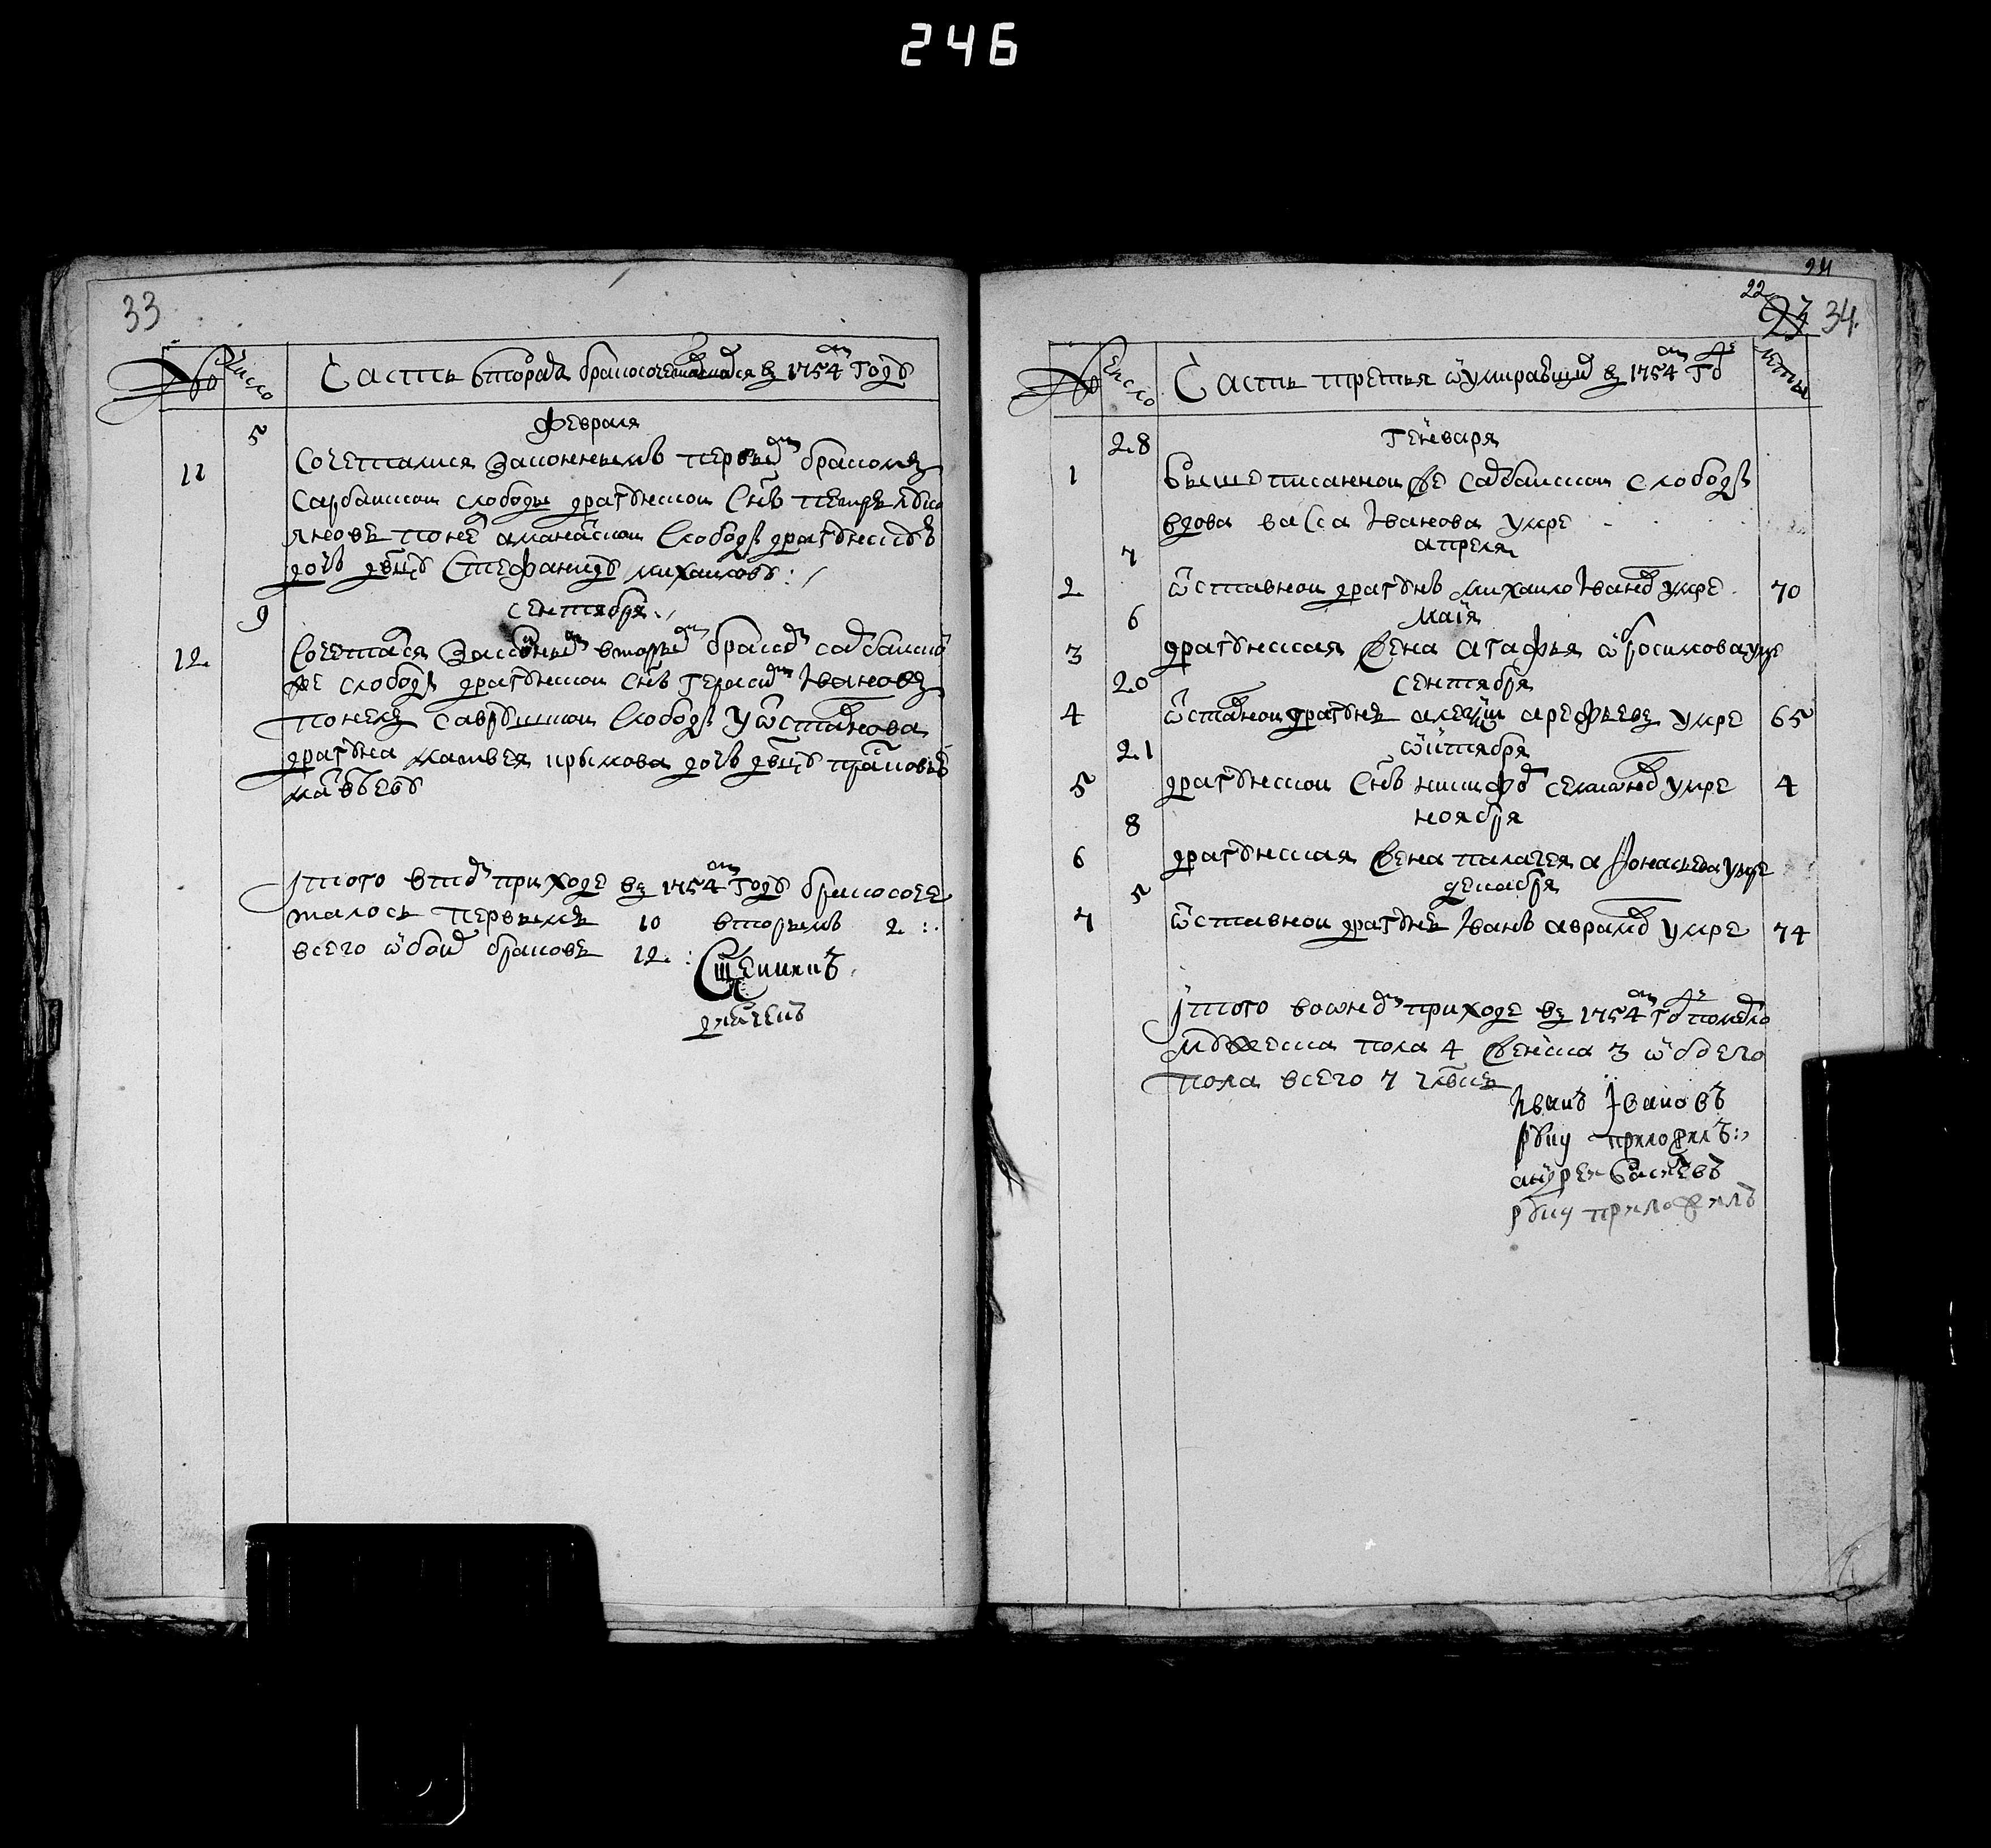 246
33
№ Число Часть вторая бракосочетавшихся въ 1754м году
февраля
5
11 Сочеталися законнымъ первымъ бракомъ
Сарбайской слободы драгунской сынъ Петръ Луко
яновъ понеⷧ҇ аманацкой слободы драгунскую
дочь девицу Стефаниду михаилову :
сентября
9
12 Сочетался законнымъ вторымъ бракомъ садбайско
же слободы драгунской сынъ герасимъ Ивановъ
понелъ саврушкой слободы у ѿставнова
драгуна матвея крымова дочь девицу прасковью
матвѣеву
Итого втомъ приходе въ 1754м году бракосоче
талось первымъ 10 вторымъ 2 :
всего ѡбоихъ браковъ 12 :
Сщенникъ
24
22
34
№ Число Часть третья ѡ умиравшихъ въ 1754м годе лѣты
28 генваря
1 вышеписанной же садбайской слободы
вдова васса Іванова умре
7 апреля
2 ѿставной драгунъ михаило Івановъ умре 70
6 маія
3 драгунская жена агафья ѡбросимова умре
20 сентября
4 ѿставной драгунъ алекѣй арефьевъ умре 65
21 ѡктября
5 драгунской сынъ никифоръ семионовъ умре 4
8 ноября
6 драгунская жена палагея афонасьева умре
5 декабря
7 ѿставной драгунъ Іванъ аврамовъ умре 74
Итого воономъ приходе въ 1754м годе померло
мужеска пола 4 женска 3 ѡбоего
пола всего 7 человѣкъ
Иванъ Івановъ
руку приложилъ :
андреи Васильевъ
руку приложилъ